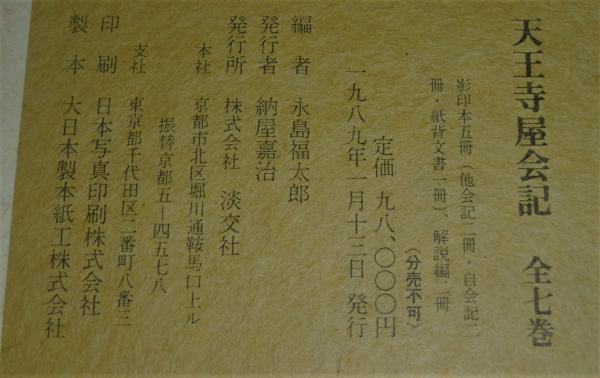 天王寺屋会記　全七巻
影印本五冊（他会記二冊・自会記二
冊・紙背文書一冊）、解説編二冊
〈分売不可〉
定価 九八、〇〇〇円
一九八九年一月十二日 発行
編者 永島福太郎
発行者 納屋嘉治
発行所 株式会社 淡交社
本社 京都市北区堀川通鞍馬口上ル
振替京都五ー四五七八
支社 東京都千代田区二番町八番三
印刷 日本写真印刷株式会社
製本 大日本製本紙工株式会社